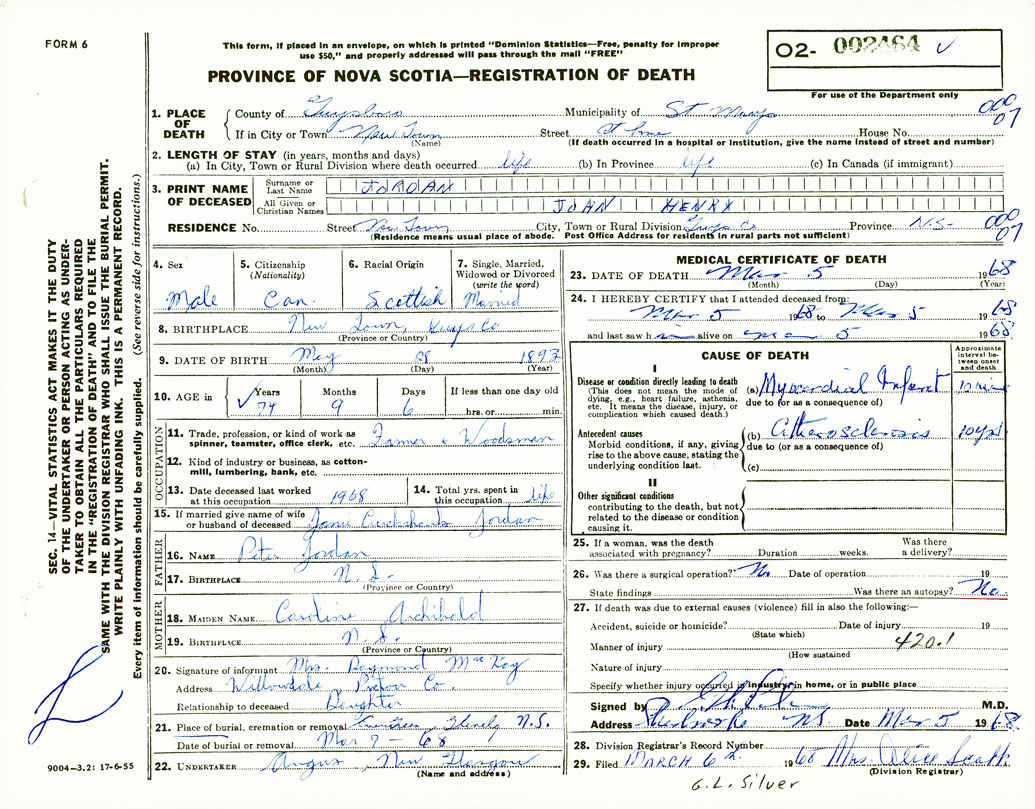 FORM 6
This form, if placed in an envelope, on which is printed "Dominion Statistics—Free, penalty for improper
use $50," and properly addressed will pass through the mail "FREE"
PROVINCE OF NOVA SCOTIA—REGISTRATION OF DEATH
02- 002464
For use of the Department only
SEC. 14—VITAL STATISTICS ACT MAKES IT THE DUTY
OF THE UNDERTAKER OR PERSON ACTING AS UNDER-
TAKER TO OBTAIN ALL THE PARTICULARS REQUIRED
IN THE "REGISTRATION OF DEATH" AND TO FILE THE
SAME WITH THE DIVISION REGISTRAR WHO SHALL ISSUE THE BURIAL PERMIT.
WRITE PLAINLY WITH UNFADING INK. THIS IS A PERMANENT RECORD.
Every item of information should be carefully supplied. (See reverse side for instructions.)
1. PLACE OF DEATH
County of Guysboro Municipality of St Marys
If in City or Town New Town Street At home House No.
(Name) (If death occurred in a hospital or institution, give the name instead of street and number)
000
07
2. LENGTH OF STAY (in years, months and days)
(a) In City, Town or Rural Division where death occurred life (b) In Province life (c) In Canada (if immigrant)
3. PRINT NAME OF DECEASED
Surname or Last Name JORDAN
All Given or Christian Names JOHN HENRY
RESIDENCE No. Street New Town City, Town or Rural Division Guys Co Province N.S.
(Residence means usual place of abode. Post Office Address for residents in rural parts not sufficient)
000
07
4. Sex Male
5. Citizenship (Nationality) Can.
6. Racial Origin Scottish
7. Single, Married, Widowed or Divorced (write the word) Married
8. BIRTHPLACE New Town, Guys Co
(Province or Country)
9. DATE OF BIRTH May 28 1893
(Month) (Day) (Year)
10. AGE in Years 74 Months 9 Days 6 If less than one day old hrs. or min.
OCCUPATION
11. Trade, profession, or kind of work as spinner, teamster, office clerk, etc. Farmer & Woodsman
12. Kind of industry or business, as cotton-mill, lumbering, bank, etc.
13. Date deceased last worked at this occupation 1968
14. Total yrs. spent in this occupation life
15. If married give name of wife or husband of deceased Jordan
FATHER
16. NAME Peter Jordan
17. BIRTHPLACE N.S.
(Province or Country)
MOTHER
18. MAIDEN NAME Caroline Archibald
19. BIRTHPLACE N.S.
(Province or Country)
20. Signature of informant Mrs. Raymond MacKay
Address Willowdale, Pictou Co.
Relationship to deceased Daughter
21. Place of burial, cremation or removal N.S.
Date of burial or removal Mar 7 - 68
22. UNDERTAKER Angus, New Glasgow
(Name and address)
9004-3.2: 17-6-55
MEDICAL CERTIFICATE OF DEATH
23. DATE OF DEATH Mar 5 1968
(Month) (Day) (Year)
24. I HEREBY CERTIFY that I attended deceased from:
Mar 5 1968 to Mar 5 1968
and last saw him alive on Mar 5 1968
CAUSE OF DEATH
Approximate interval between onset and death
I
Disease or condition directly leading to death
(This does not mean the mode of dying, e.g., heart failure, asthenia, etc. It means the disease, injury, or complication which caused death.)
(a) Myocardial Infarct 10 min
due to (or as a consequence of)
Antecedent causes
Morbid conditions, if any, giving rise to the above cause, stating the underlying condition last.
(b) Atherosclerosis 10 yrs
due to (or as a consequence of)
(c)
II
Other significant conditions
contributing to the death, but not related to the disease or condition causing it.
25. If a woman, was the death associated with pregnancy? Duration weeks. Was there a delivery?
26. Was there a surgical operation? No Date of operation 19
State findings Was there an autopsy? No
27. If death was due to external causes (violence) fill in also the following:—
Accident, suicide or homicide? Date of injury 19
(State which)
Manner of injury 420.1
(How sustained
Nature of injury
Specify whether injury occurred in industry, in home, or in public place
Signed by M.D.
Address Sherbrooke NS Date Mar 5 1968
28. Division Registrar's Record Number
29. Filed MARCH 6th 1968 Mrs. Alice Scott
(Division Registrar)
G.L. Silver